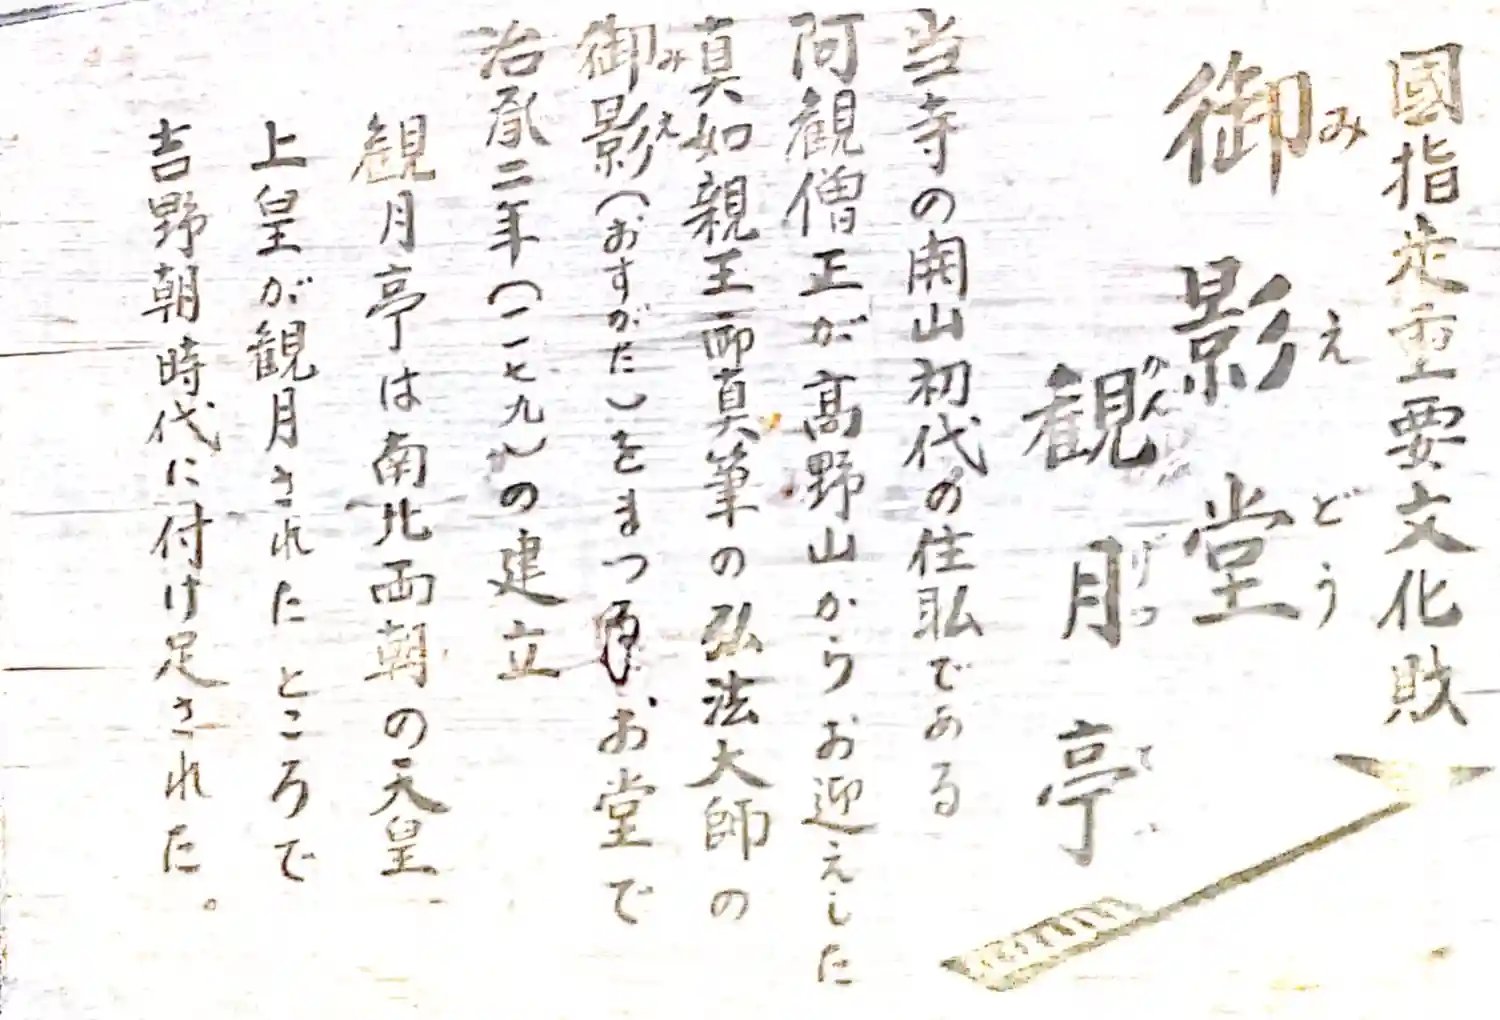 國指定重要文化財
御影堂
みえどう
観月亭
かんげつてい
当寺の開山初代の住職である
阿観僧正が高野山からお迎えした
真如親王御真筆の弘法大師の
御影(おすがた)をまつるお堂で
みえ
治承二年(一一七九)の建立
観月亭は南北両朝の天皇
上皇が観月されたところで
吉野朝時代に付け足された。